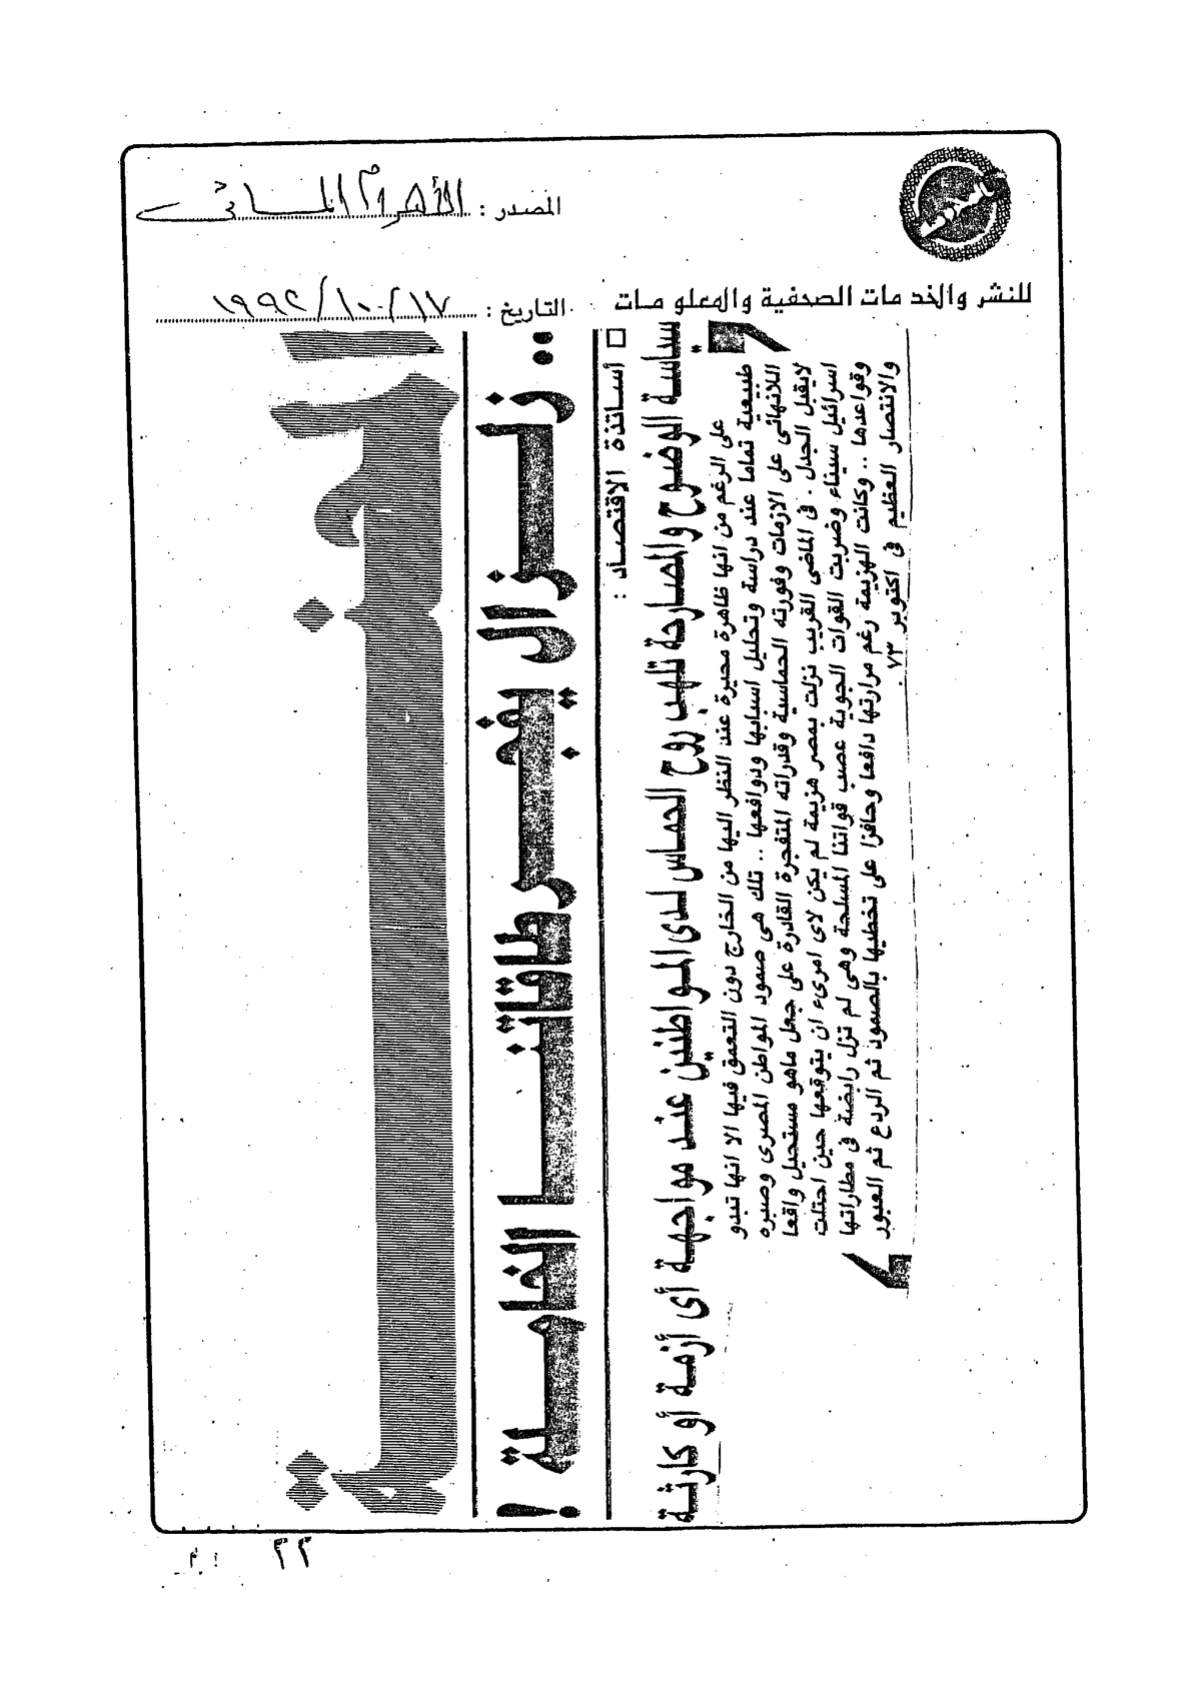 المصدر : الأهرام المسائى
للنشر والخدمات الصحفية والمعلومات
التاريخ : ١٧/١٠/١٩٩٢
.. زلزال يفجر طاقاتنا الخاملة !
□ أساتذة الاقتصاد :
سياسة الوضوح والمصارحة تلهب روح الحماس لدى المواطنين عند مواجهة أى أزمة أو كارثة
على الرغم من انها ظاهرة محيرة عند النظر اليها من الخارج دون التعمق فيها الا انها تبدو
طبيعية تماما عند دراسة وتحليل اسبابها ودوافعها .. تلك هى صمود المواطن المصرى وصبره
اللانهائى على الازمات وفورته الحماسية وقدراته المتفجرة القادرة على جعل ماهو مستحيل واقعا
لايقبل الجدل . فى الماضى القريب نزلت بمصر هزيمة لم يكن لاى امرىء ان يتوقعها حين احتلت
اسرائيل سيناء وضربت القوات الجوية عصب قواتنا المسلحة وهى لم تزل رابضة فى مطاراتها
وقواعدها .. وكانت الهزيمة رغم مرارتها دافعا وحافزا على تخطيها بالصمود ثم الردع ثم العبور
والانتصار العظيم فى اكتوبر ٧٣ .
٢٢